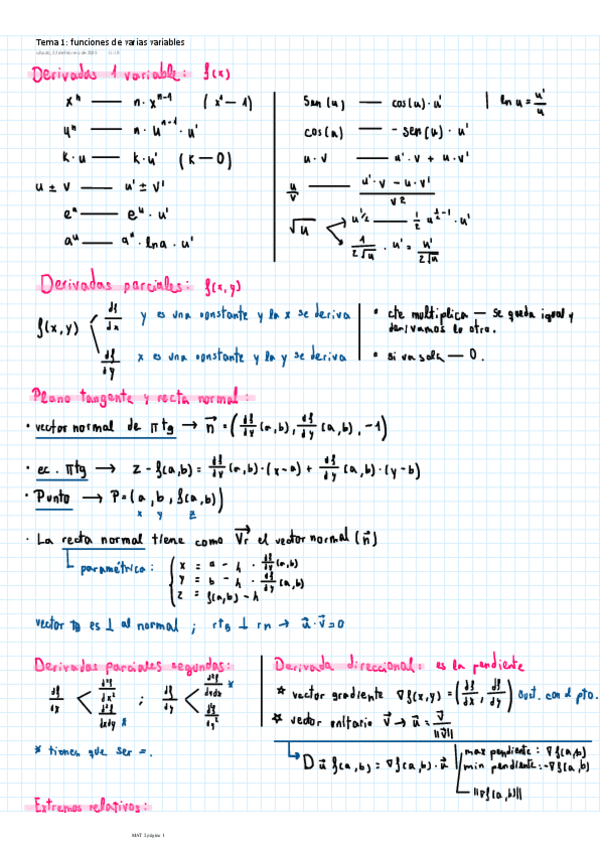 Tema 1: funciones de varias variables
Derivadas 1 variable: f(x)
xⁿ — n·xⁿ⁻¹ (x¹ — 1)
uⁿ — n·uⁿ⁻¹·u'
k·u — k·u' (k — 0)
u ± v — u' ± v'
eᵘ — eᵘ·u'
aᵘ — aᵘ·lna·u'
sen(u) — cos(u)·u'
cos(u) — -sen(u)·u'
u·v — u'·v + u·v'
u/v — (u'·v - u·v')/v²
√u < u^(1/2) — 1/2 u^(1/2-1)·u'
1/(2√u)·u' = u'/(2√u)
ln u = u'/u
Derivadas parciales: f(x,y)
f(x,y) < df/dx y es una constante y la x se deriva
df/dy x es una constante y la y se deriva
• cte multiplica — se queda igual y
derivamos lo otro.
• si va sola — 0.
Plano tangente y recta normal:
· vector normal de π tg → n⃗ = (df/dx (a,b), df/dy (a,b), -1)
· ec. πtg → z - f(a,b) = df/dx (a,b)·(x-a) + df/dy (a,b)·(y-b)
· Punto → P = (a, b, f(a,b))
x y z
· La recta normal tiene como V⃗r el vector normal (n⃗)
paramétrica: { x = a - h · df/dx (a,b)
y = b - h · df/dy (a,b)
z = f(a,b) - h
vector tg es ⊥ al normal ; rtg ⊥ rn → u⃗·v⃗=0
Derivadas parciales segundas:
df/dx < d²f/dx² ; df/dy < d²f/dydx *
d²f/dxdy * d²f/dy²
* tienen que ser =.
Derivada direccional: es la pendiente
☆ vector gradiente ∇f(x,y) = (df/dx, df/dy) sust. con el pto.
☆ vector unitario v⃗ → u⃗ = v⃗/||v⃗||
D u⃗ f(a,b) = ∇f(a,b)·u⃗
max pendiente: ∇f(a,b)
min pendiente: -∇f(a,b)
||∇f(a,b)||
Extremos relativos:
MAT 2 página 1